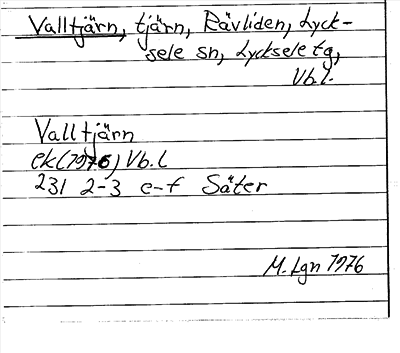 Valltjärn, tjärn, Rävliden, Lyck-
sele sn, Lycksele tg,
Vb.l.
Valltjärn
ek (1976) Vb.l
231 2-3 e-f Säter
M. Lgn 1976